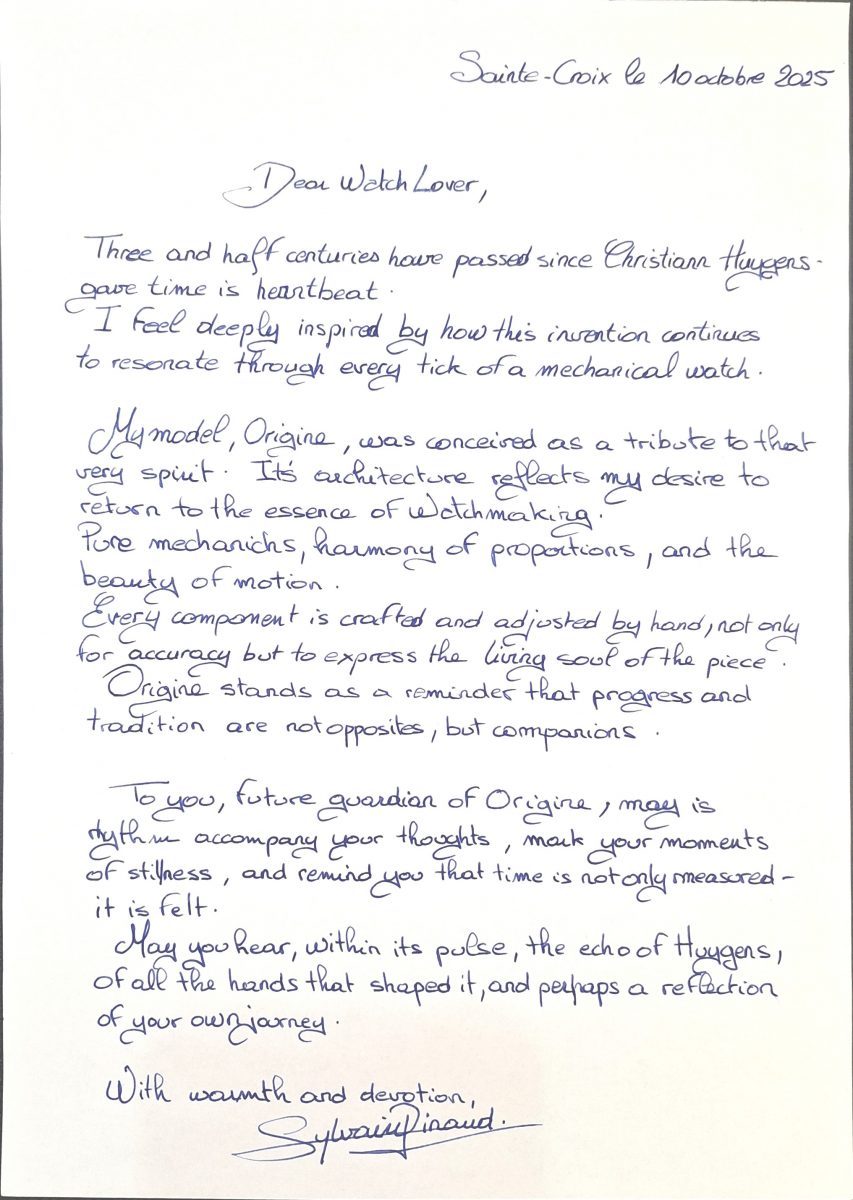 Sainte-Croix le 10 octobre 2025
Dear Watch Lover,
Three and half centuries have passed since Christiann Huygens
gave time is heartbeat.
I feel deeply inspired by how this invention continues
to resonate through every tick of a mechanical watch.
My model, Origine, was conceived as a tribute to that
very spirit. It's architecture reflects my desire to
return to the essence of Watchmaking.
Pure mechanichs, harmony of proportions, and the
beauty of motion.
Every component is crafted and adjusted by hand, not only
for accuracy but to express the living soul of the piece.
Origine stands as a reminder that progress and
tradition are not opposites, but companions.
To you, future guardian of Origine, may is
rhythm accompany your thoughts, mark your moments
of stillness, and remind you that time is not only measured -
it is felt.
May you hear, within its pulse, the echo of Huygens,
of all the hands that shaped it, and perhaps a reflection
of your own journey.
With warmth and devotion,
Sylvain Pinaud.